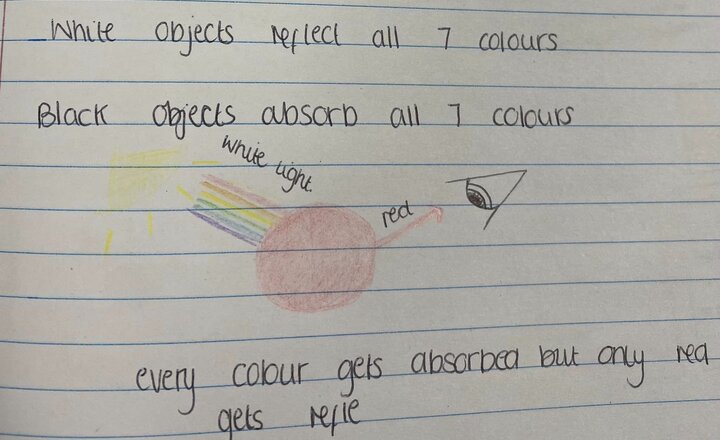 White objects reflect all 7 colours
Black objects absorb all 7 colours
white light
red
every colour gets absorbed but only red
gets refle